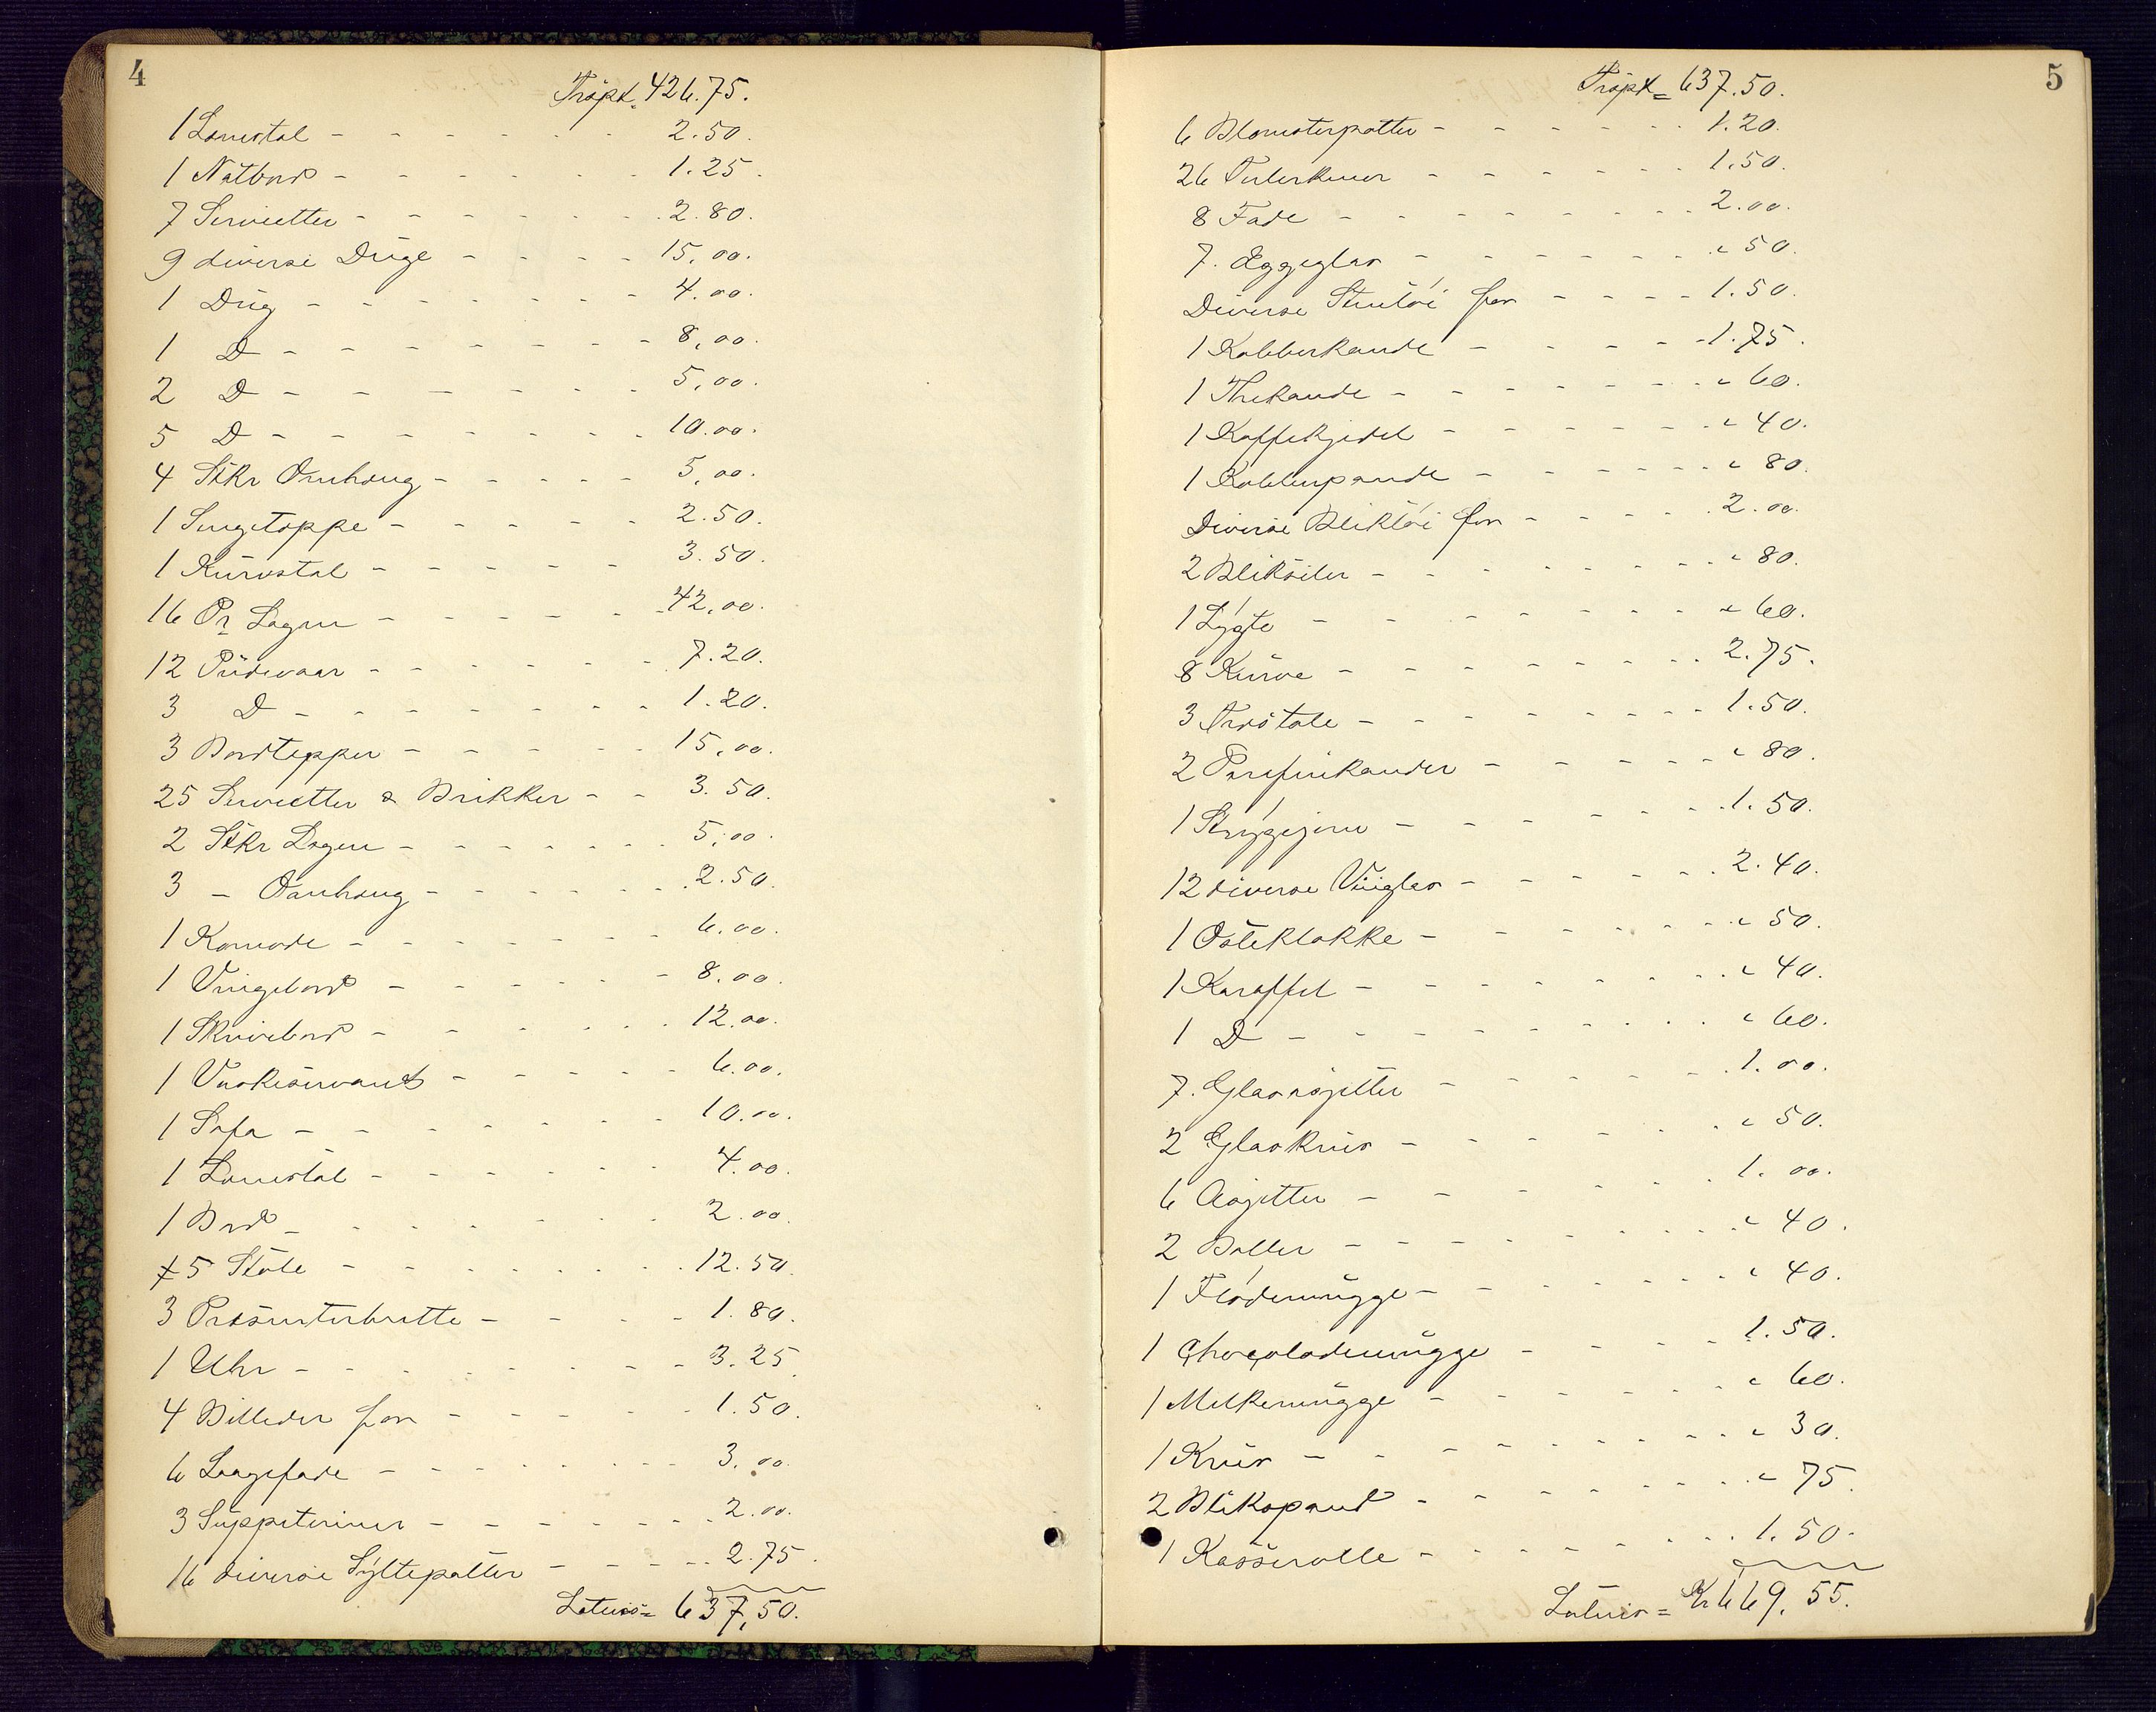 4
Trspt. 426.75.
1 Lænestol - - - - - - 2.50.
1 Natbord - - - - - - 1.25.
7 Servietter - - - - - - 2.80.
9 diverse Duge - - - - 15,00.
1 Dug - - - - - - - 4.00.
1 D - - - - - - - 8,00.
2 D - - - - - - - 5,00.
5 D - - - - - - - 10.00.
4 Stkr Omhæng - - - - - 5,00.
1 Sengetæppe - - - - - 2.50.
1 Kurvstol - - - - - 3.50.
16 Pr Lagen - - - - - 42,00.
12 Pudevaar - - - - - - 7.20.
3 D - - - - - - - 1.20.
3 Bordtepper - - - - - 15,00.
25 Servietter & Brikker - - 3.50.
2 Stkr Lagen - - - - - - 5,00.
3 - Omhæng - - - - - - 2.50.
1 Komode - - - - - - 6.00.
1 Vingebord - - - - - - 8.00.
1 Skrivebord - - - - - - 12.00.
1 Vaskeservant - - - - - 6.00.
1 Sofa - - - - - - - 10.00.
1 Lænestol - - - - - - 4.00.
1 Bord - - - - - - - 2.00.
5 Stole - - - - - - - 12.50.
3 Præsenterbrette - - - - 1.80.
1 Uhr - - - - - - - 3.25.
4 Billeder for - - - - - 1.50.
6 Laagefade - - - - - - 3.00.
3 Suppeteriner - - - - - - 2.00.
16 diverse Syltepotter - - - - 2.75.
Latus = 637,50.
5
Trspt = 637.50.
6 Blomsterpotter - - - - - 1.20.
26 Tallerkener - - - - - - 1.50.
8 Fade - - - - - - - 2.00.
7. Æggeglas - - - - - - " 50.
Diverse Stentøi for - - - - 1.50.
1 Kobberkande - - - - - 1.75.
1 Thekande - - - - - - " 60.
1 Kaffekjedel - - - - - - " 40.
1 Kobberpande - - - - - - " 80.
Diverse Bliktøi for - - - - 2.00.
2 Bliksiler - - - - - - - " 80.
1 Lygte - - - - - - - " 60.
8 Kurve - - - - - - - 2.75.
3 Træstole - - - - - - - 1.50.
2 Parafinkander - - - - - " 80.
1 Strygejern - - - - - - 1.50.
12 diverse Vinglas - - - - - 2.40.
1 Osteklokke - - - - - - " 50.
1 Karaffel - - - - - - - " 40.
1 D - - - - - - - - " 60.
7. Glasasjetter - - - - - - 1.00.
2 Glaskrus - - - - - - " 50.
6 Asjetter - - - - - - 1.00.
2 Boller - - - - - - - " 40.
1 Flødemugge - - - - - - " 40.
1 Chocolademugge - - - - 1.50.
1 Melkemugge - - - - - - " 60.
1 Krus - - - - - - - " 30.
2 Blikspand - - - - - - - " 75.
1 Kasserolle - - - - - - - 1.50.
Latus = Kr 669,55.